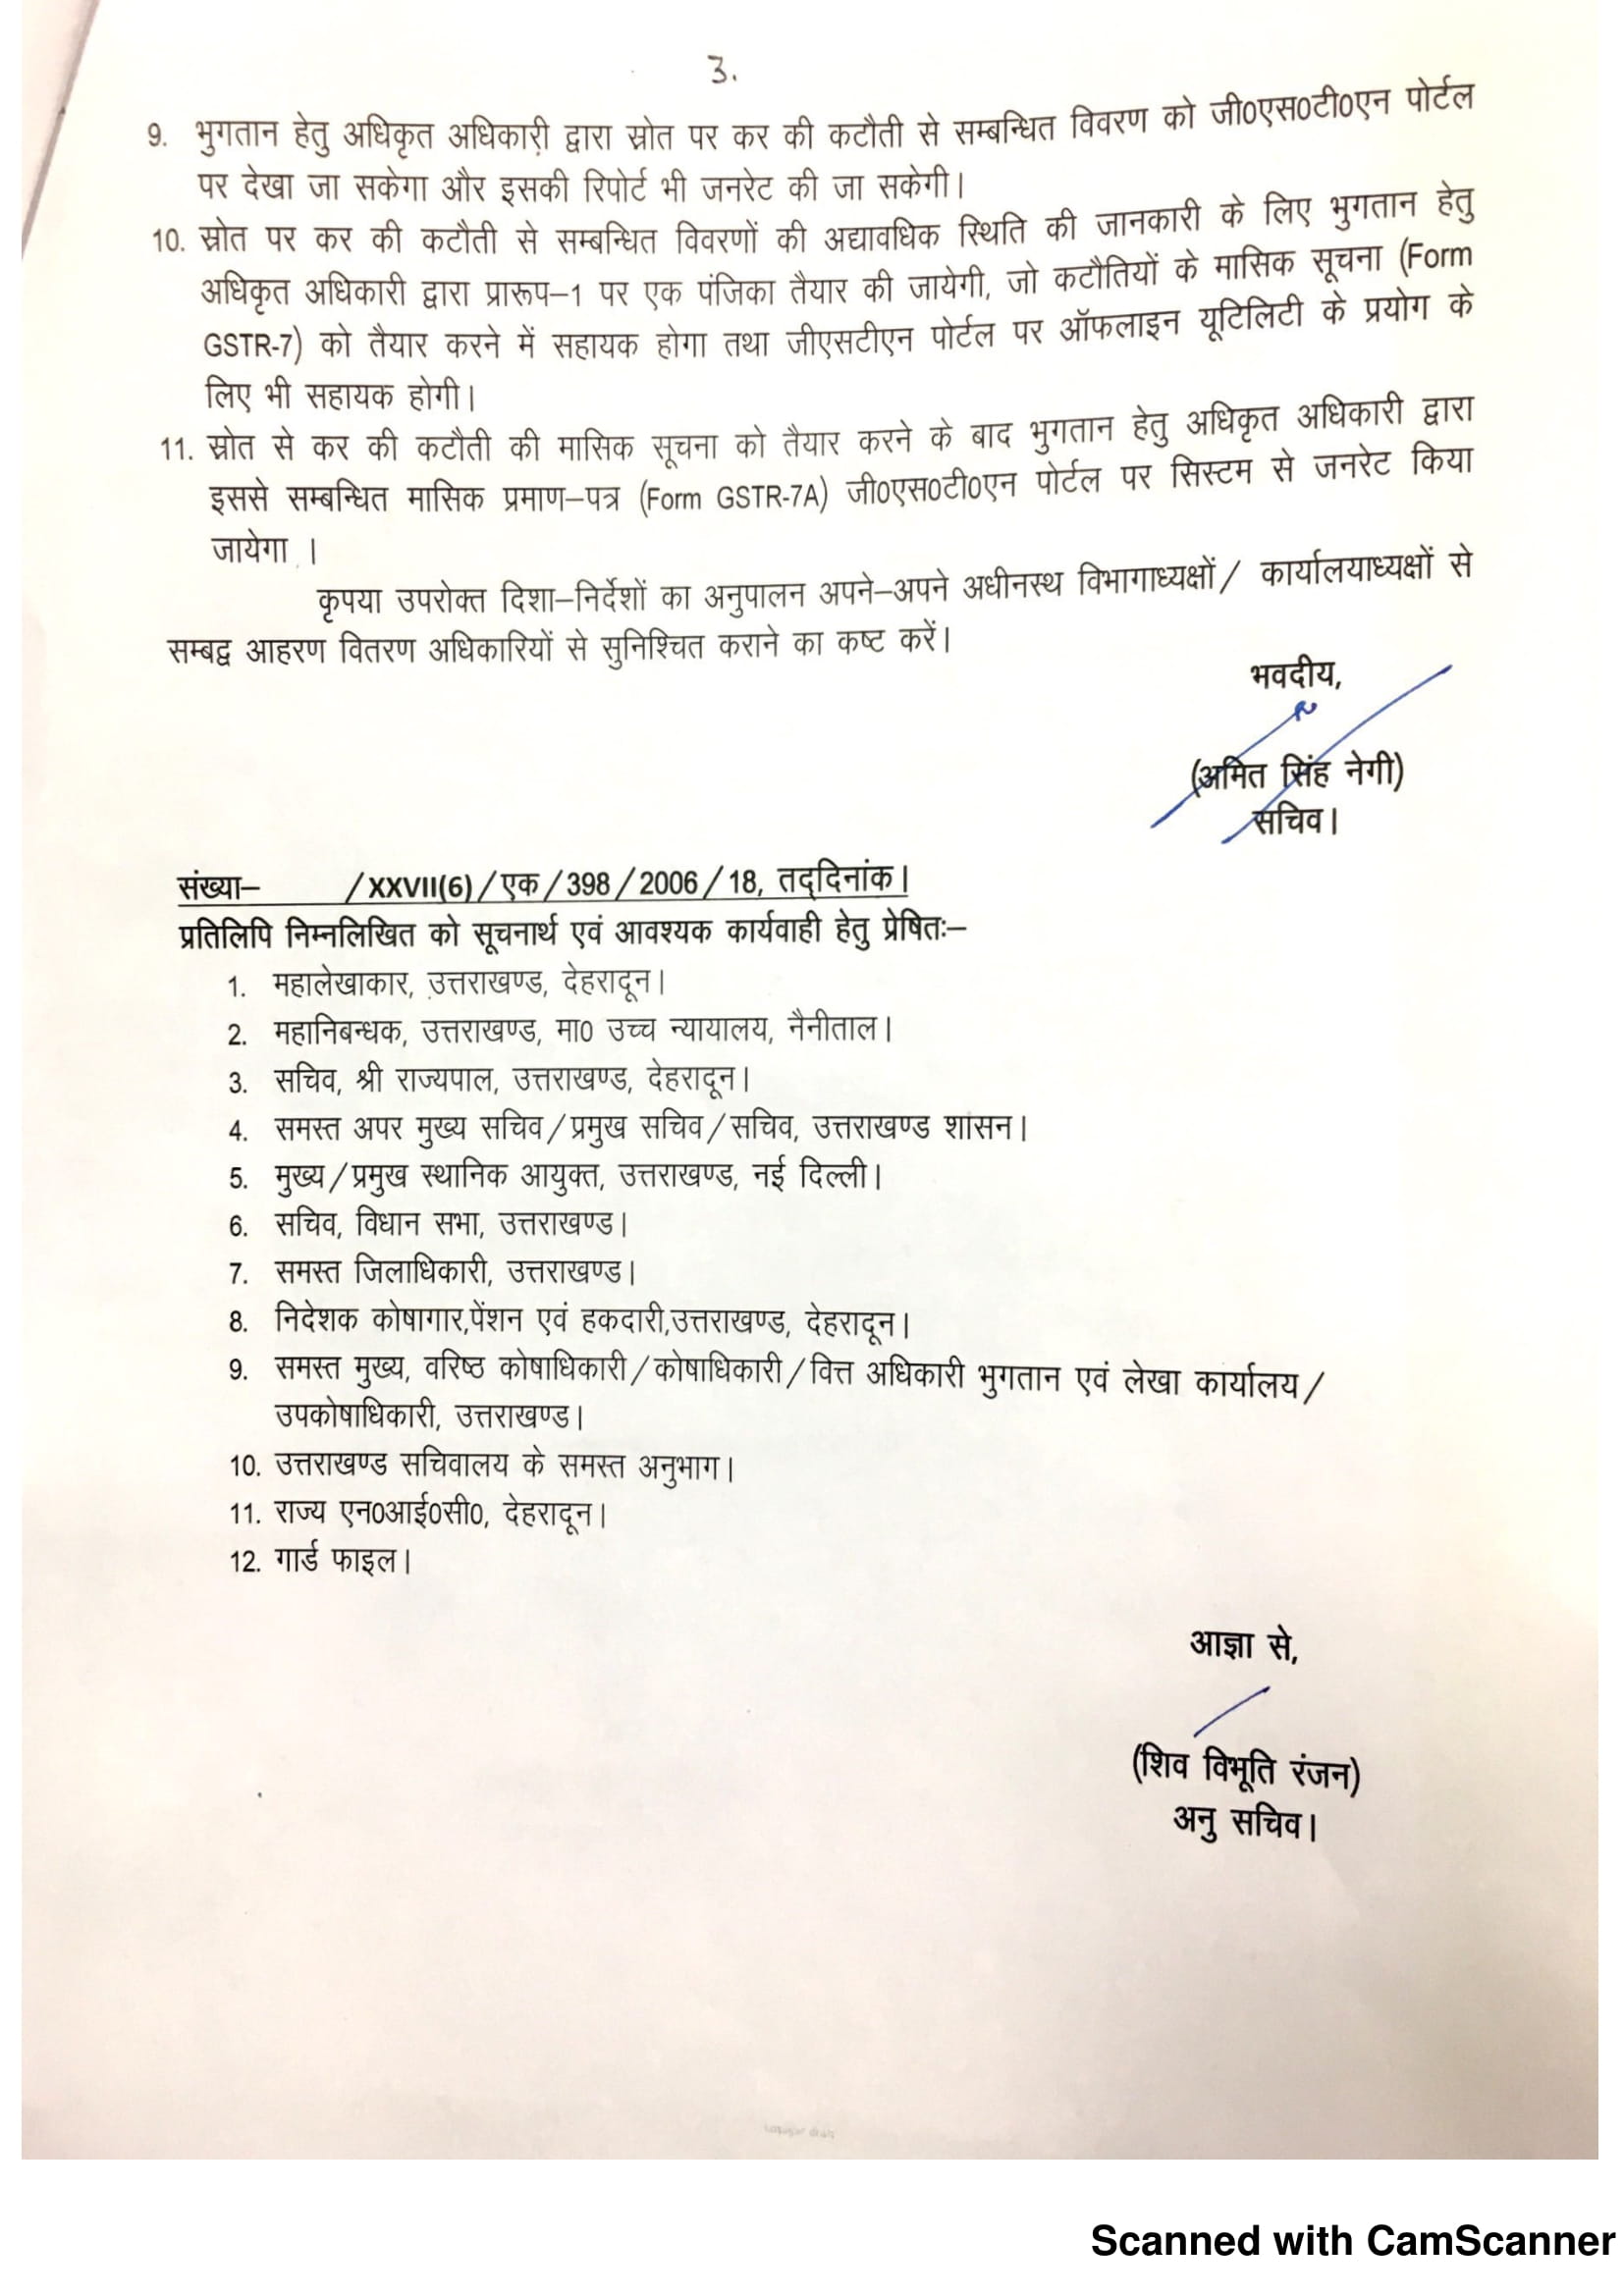 3.
9. भुगतान हेतु अधिकृत अधिकारी द्वारा स्रोत पर कर की कटौती से सम्बन्धित विवरण को जी0एस0टी0एन पोर्टल
पर देखा जा सकेगा और इसकी रिपोर्ट भी जनरेट की जा सकेगी।
10. स्रोत पर कर की कटौती से सम्बन्धित विवरणों की अद्यावधिक स्थिति की जानकारी के लिए भुगतान हेतु
अधिकृत अधिकारी द्वारा प्रारूप–1 पर एक पंजिका तैयार की जायेगी, जो कटौतियों के मासिक सूचना (Form
GSTR-7) को तैयार करने में सहायक होगा तथा जीएसटीएन पोर्टल पर ऑफलाइन यूटिलिटी के प्रयोग के
लिए भी सहायक होगी।
11. स्रोत से कर की कटौती की मासिक सूचना को तैयार करने के बाद भुगतान हेतु अधिकृत अधिकारी द्वारा
इससे सम्बन्धित मासिक प्रमाण–पत्र (Form GSTR-7A) जी0एस0टी0एन पोर्टल पर सिस्टम से जनरेट किया
जायेगा ।
कृपया उपरोक्त दिशा–निर्देशों का अनुपालन अपने–अपने अधीनस्थ विभागाध्यक्षों/ कार्यालयाध्यक्षों से
सम्बद्व आहरण वितरण अधिकारियों से सुनिश्चित कराने का कष्ट करें।
भवदीय,
(अमित सिंह नेगी)
सचिव।
संख्या– /XXVII(6)/एक/398/2006/18, तद्दिनांक।
प्रतिलिपि निम्नलिखित को सूचनार्थ एवं आवश्यक कार्यवाही हेतु प्रेषितः–
1. महालेखाकार, उत्तराखण्ड, देहरादून।
2. महानिबन्धक, उत्तराखण्ड, मा0 उच्च न्यायालय, नैनीताल।
3. सचिव, श्री राज्यपाल, उत्तराखण्ड, देहरादून।
4. समस्त अपर मुख्य सचिव/प्रमुख सचिव/सचिव, उत्तराखण्ड शासन।
5. मुख्य/प्रमुख स्थानिक आयुक्त, उत्तराखण्ड, नई दिल्ली।
6. सचिव, विधान सभा, उत्तराखण्ड।
7. समस्त जिलाधिकारी, उत्तराखण्ड।
8. निदेशक कोषागार,पेंशन एवं हकदारी,उत्तराखण्ड, देहरादून।
9. समस्त मुख्य, वरिष्ठ कोषाधिकारी/कोषाधिकारी/वित्त अधिकारी भुगतान एवं लेखा कार्यालय/
उपकोषाधिकारी, उत्तराखण्ड।
10. उत्तराखण्ड सचिवालय के समस्त अनुभाग।
11. राज्य एन0आई0सी0, देहरादून।
12. गार्ड फाइल।
आज्ञा से,
(शिव विभूति रंजन)
अनु सचिव।
Scanned with CamScanner